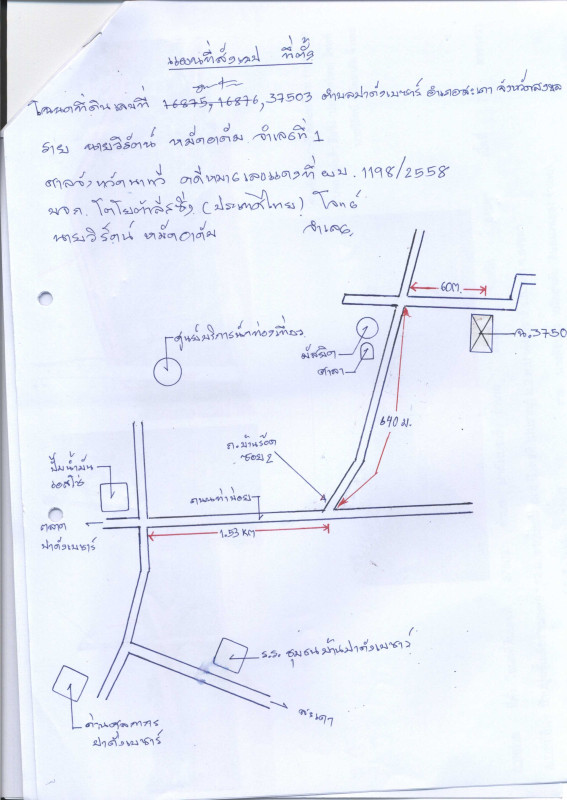 แผนที่สังเขป ที่ตั้ง
โฉนดที่ดินเลขที่ 16875, 16876, 37503 ตำบลปาดังเบซาร์ อำเภอสะเดา จังหวัดสงขลา
ราย นายวิรัตน์ หมัดอาดัม จำเลยที่ 1
ศาลจังหวัดนาทวี คดีหมายเลขแดงที่ ผบ. 1198/2558
บจก. โตโยต้าลีสซิ่ง (ประเทศไทย) โจทก์
นายวิรัตน์ หมัดอาดัม จำเลย
60ม.
ศูนย์บริการนักท่องเที่ยว
มัสยิด
ศาลา
ฉ.3750
640 ม.
ถ.บ้านร็อต
ซอย 2
ปั๊มน้ำมัน
เอสโซ่
ถนนท่าน่อย
ตลาด
ปาดังเบซาร์
1.53 KM
ร.ร. ชุมชนบ้านปาดังเบซาร์
สะเดา
ด่านศุลกากร
ปาดังเบซาร์